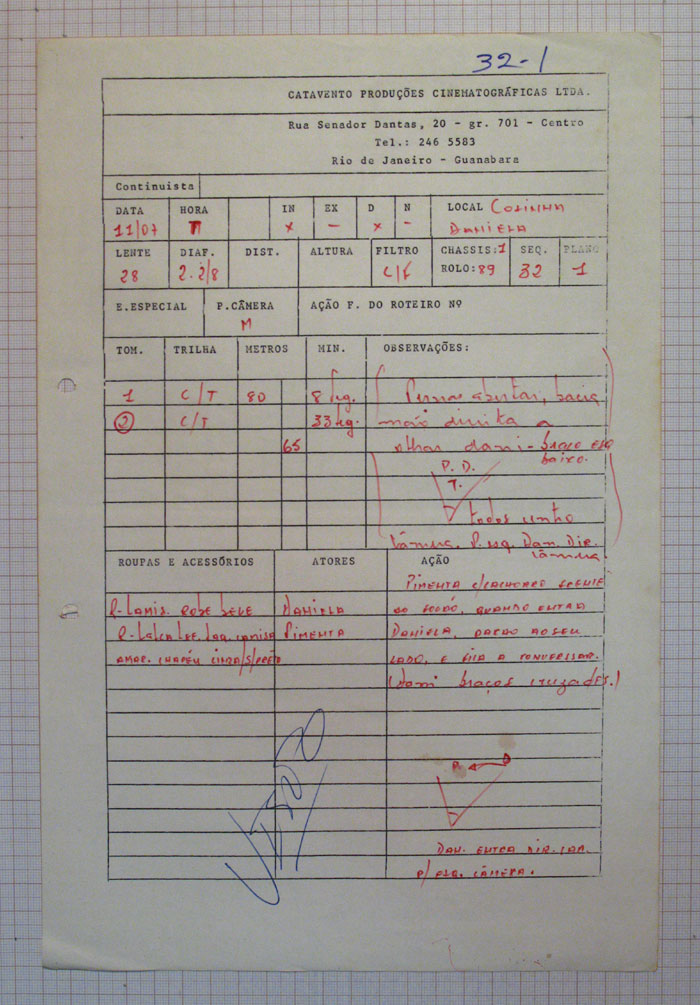 32-1
CATAVENTO PRODUÇÕES CINEMATOGRÁFICAS LTDA.
Rua Senador Dantas, 20 - gr. 701 - Centro
Tel.: 246 5583
Rio de Janeiro - Guanabara
Continuista
DATA HORA IN EX D N LOCAL COZINHA
11/07 T x - x - DANIELA
LENTE DIAF. DIST. ALTURA FILTRO CHASSIS:1 SEQ. PLANO
28 2.2/8 C/F ROLO:89 32 1
E.ESPECIAL P.CÂMERA AÇÃO F. DO ROTEIRO Nº
M
TOM. TRILHA METROS MIN. OBSERVAÇÕES:
1 C/T 80 8 seg. Pernas abertas,
2 C/T 33 seg. mão direita a
65 olhar dani - braço esq
baixo.
P. D.
T.
todos
câmera. P. esq. Dan. Dir.
câmera
ROUPAS E ACESSÓRIOS ATORES AÇÃO
PIMENTA C/CACHORRO
P- CAMIS. ROBE BEGE DANIELA QUANDO ENTRA
P- CALÇA CAMISA PIMENTA DANIELA, AO SEU
AMAR. CHAPÉU CINZA/S/PRETO LADO, E FICA A CONVERSAR.
(Dani braços cruzados.)
P. D
DAN. ENTRA DIR. CAM.
P/ ESQ. CÂMERA.